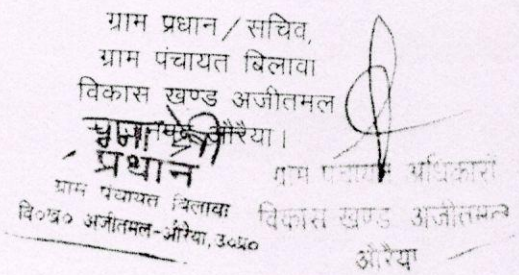 ग्राम प्रधान/सचिव,
ग्राम पंचायत बिलावा
विकास खण्ड अजीतमल
औरैया।
प्रधान
ग्राम पंचायत बिलावा
वि०ख० अजीतमल-औरैया, उ०प्र०
ग्राम पंचायत अधिकारी
विकास खण्ड अजीतमल
औरैया